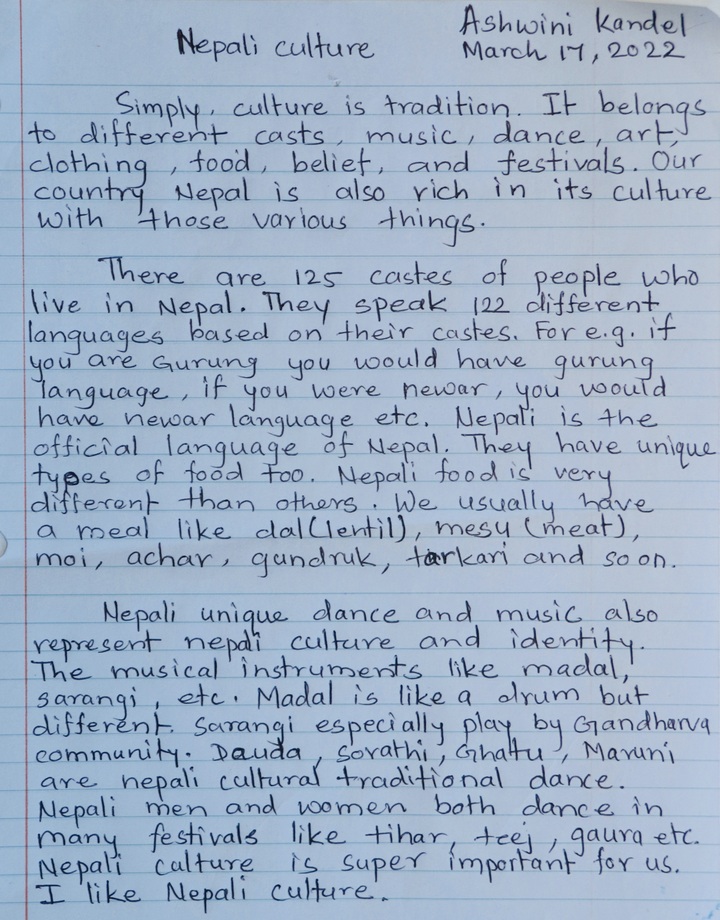 Ashwini Kandel
Nepali culture March 17, 2022
Simply, culture is tradition. It belongs
to different casts, music, dance, art,
clothing, food, belief, and festivals. Our
country Nepal is also rich in its culture
with those various things.
There are 125 castes of people who
live in Nepal. They speak 122 different
languages based on their castes. For e.g. if
you are Gurung you would have gurung
language, if you were newar, you would
have newar language etc. Nepali is the
official language of Nepal. They have unique
types of food too. Nepali food is very
different than others. We usually have
a meal like dal(lentil), mesu (meat),
moi, achar, gundruk, tarkari and so on.
Nepali unique dance and music also
represent nepali culture and identity.
The musical instruments like madal,
sarangi, etc. Madal is like a drum but
different. Sarangi especially play by Gandharva
community. Dauda, Sorathi, Ghatu, Maruni
are nepali cultural traditional dance.
Nepali men and women both dance in
many festivals like tihar, teej, gaura etc.
Nepali culture is super important for us.
I like Nepali culture.